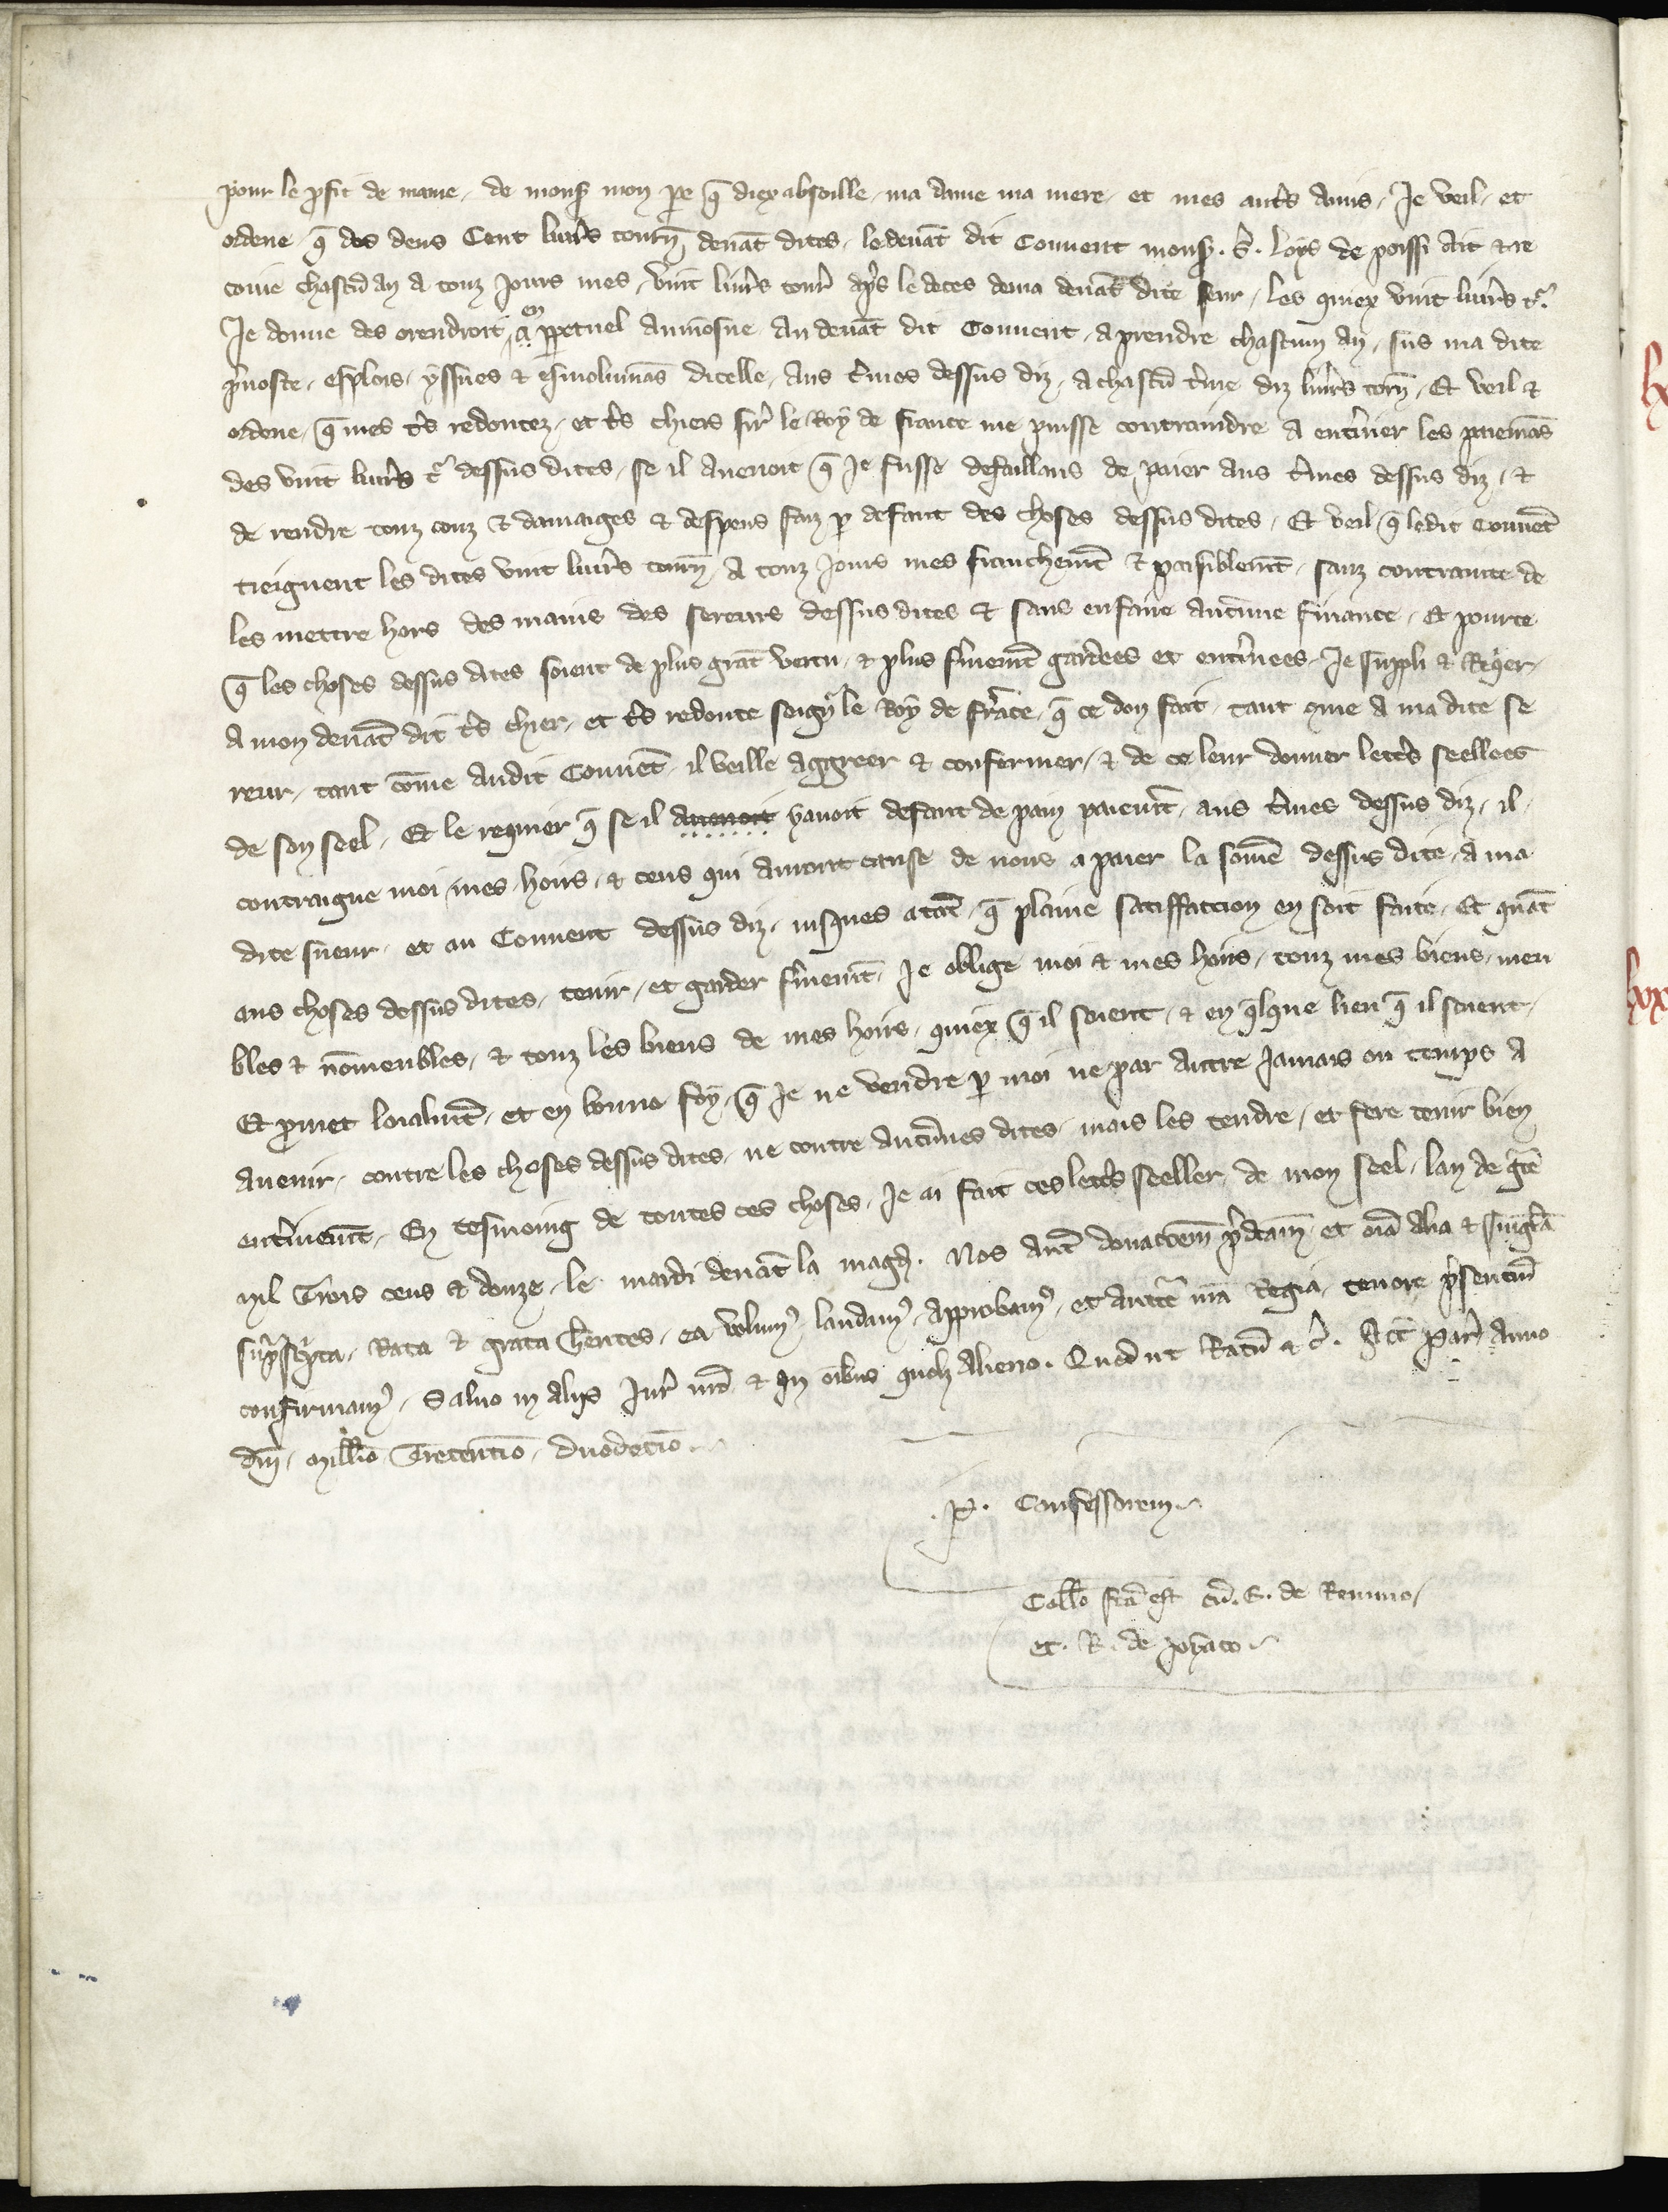 pour le pfit de mame, de mons mon pe q̄ diex absoille, ma dame ma mere, et mes autrs̄ amis, Je veil, et
ordene, q̄ des deus Cent liurs̄ tourn̄ deuāt dites, le deuāt dit Couuent mons̄. S. Loys de poissi ait & re
coiue chascū an a touz Jours mes, vint liurs̄ tour̄ aps̄ le deces dema deuāt dite seur, les quiex vint liurs̄ t̄.
Je donne des orendroit, en ppetuel aumosne au deuāt dit Couuent, a prendre chascun an, sus ma dite
puoste, esplois, yssues & esmolumās dicelle, aus tmes dessus diz, a chascū tme diz liurs̄ torn̄, Et veil &
ordene, q̄ mes trs̄ redoutez, et trs̄ chiers sir̄ le Roy de france me puisse contraindre a entiner les paiemās
des vint liurs̄ t̄ dessus dites, se il auenoit q̄ Je fusse defaillans de paier aus tmes dessus diz, &
de rendre touz couz & damaiges & despens faiz p defaut des choses dessus dites, Et veil q̄ ledit Couuēt
tieignent les dites vint liurs̄ tourn̄, a touz Jours mes franchemt̄ & paisiblemt̄, sanz contrainte de
les mettre hors des mains des sereurs dessus dites & sans enfaire aucūne finance, Et pource
q̄ les choses dessus dites soient de plus grāt vertu, & plus fmemt̄ gardees et entinees, Je suppli & Reqer,
a mon deuāt dit trs̄ chier, et trs̄ redoute seigr̄ le Roy de frāce, q̄ ce don fait, tant qme a ma dite se
reur, tant cōme audit Couuēt, il veille aggreer & confermer, & de ce leur donner lettrs̄ seellees
de son seel, Et le requier q̄ se il auenoit yauoit defaut de pain paiemt̄, aus tmes dessus diz, il
contraigne moi, mes hoirs, & ceus qui auront cause de nous a paier la somē dessus dite, a ma
dite sueur, et au Couuent dessus diz, iusques atāt, q̄ plaine satiffaccion en soit faite, Et quāt
aus choses dessus dites, tenir, et garder fmemt̄, Je oblige moi & mes hoirs, touz mes biens, meu
bles & nōmeubles, & touz les biens de mes hoirs, quiex q̄ il soient, & en qlque lieu q̄ il soient,
Et pmet loialmt̄, et en bonne foy, q̄ Je ne vendre p moi ne par autre Jamais ou temps a
auenir, contre les choses dessus dites, ne contre aucūnes dites, mais les tendre, et fere tenir bien
entinemt̄, En tesmoing de toutes ces choses, Je ai fait ces lettrs̄ seeller de mon seel, lan de gr̄ce
mil Trois cens & douze, le mardi deuāt la magd̄. Nos aut̄ donacōem pdcām et oīa alia & singla
supscpta, Rata & grata hēntes, ea volum9, laudam9, approbam9, et auctte nrā Regia, tenore psentiū
confirmam9, Saluo in aliis Jur̄ nrō & In oībus quolz alieno. Quod ut Ratū & c̄. Act̄ par̄ anno
dn̄i, millīo Trecentīo, duodecīo.
.P. Confessorem.
Collō fca est cū. G. de Remino,
et. R. de